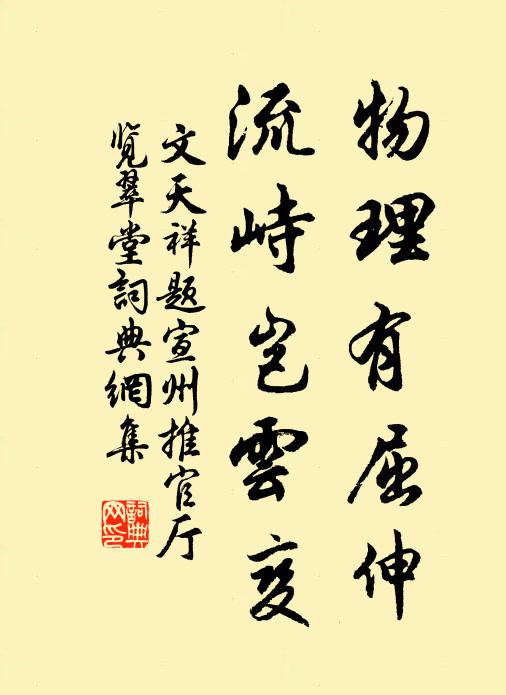 物理有屈伸
流峙岂雲变
文天祥题宣州推官厅
览翠堂詞典網集
詞典网印